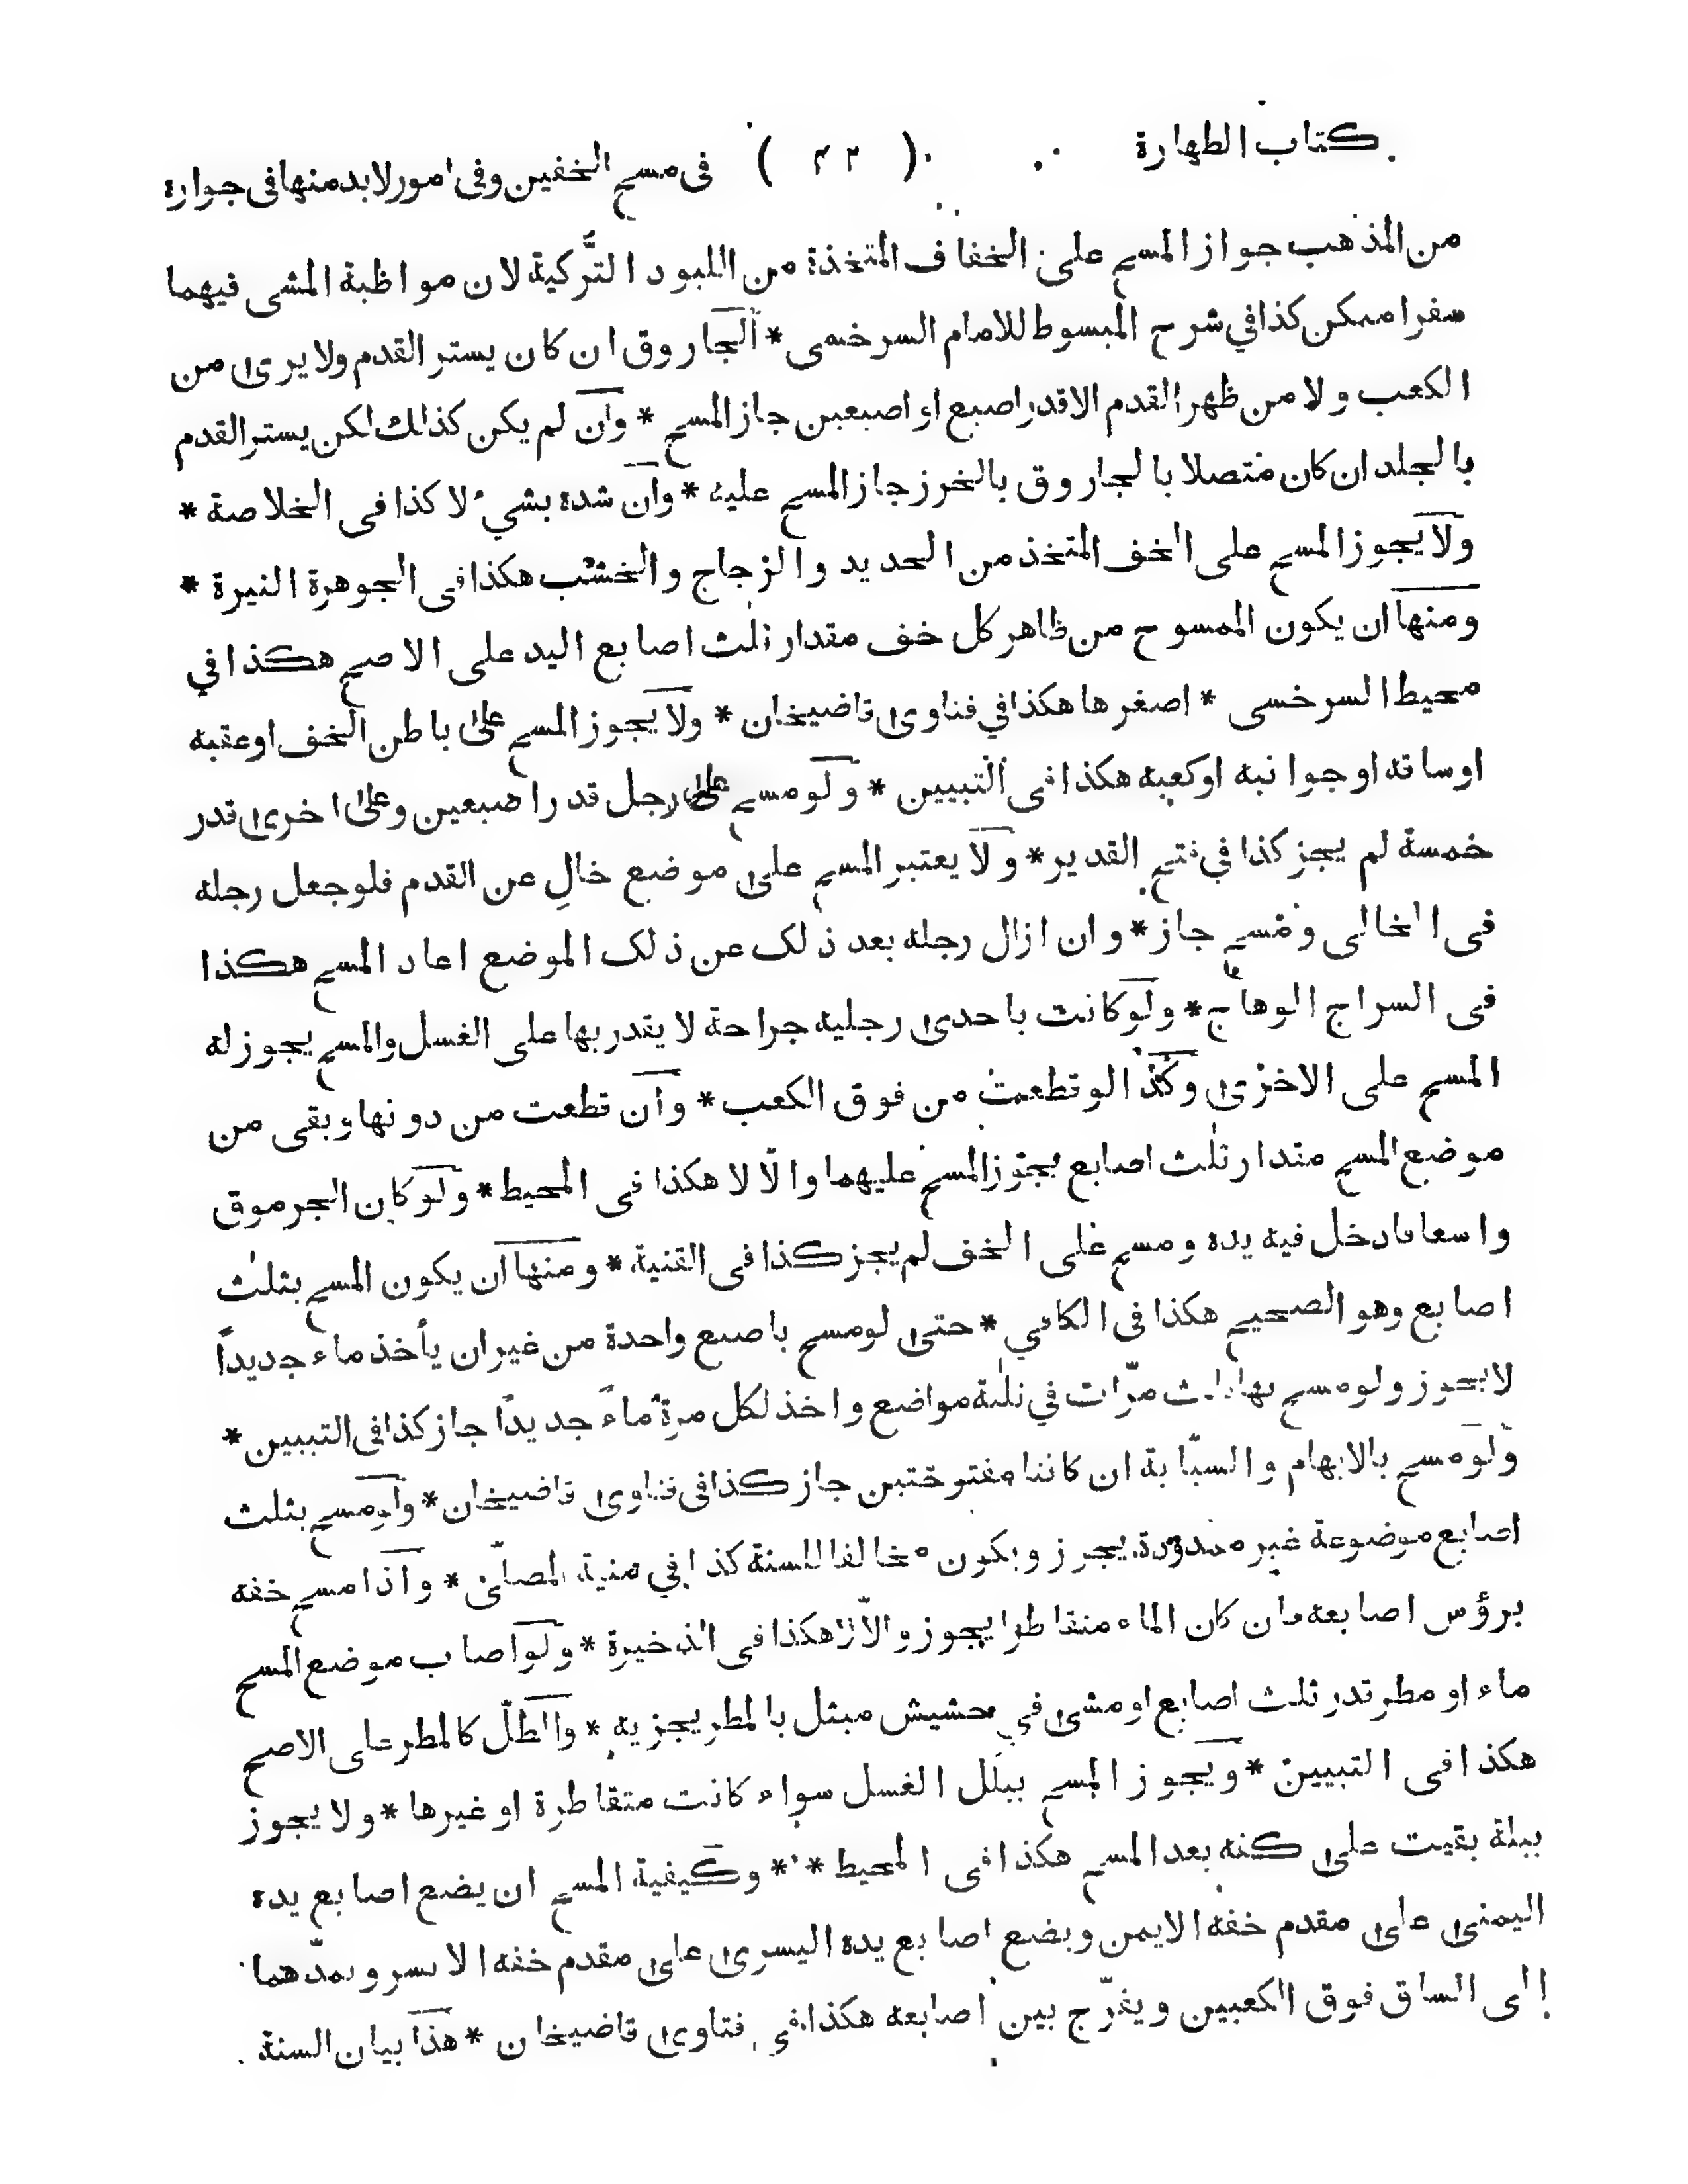 كتاب الطهارة ( ٤٢ ) فى مسح الخفين وفى امور لابد منها فى جوازه
من المذهب جواز المسح على الخفاف المتخذة من اللبود التركية لان مواظبة المشى فيهما
سفرا ممكن كذا في شرح المبسوط للامام السرخسى * الجاروق ان كان يستر القدم ولا يرى من
الكعب ولا من ظهر القدم الا قدر اصبع او اصبعين جاز المسح * وان لم يكن كذلك لكن يستر القدم
بالجلد ان كان متصلا بالجاروق بالخرز جاز المسح عليه * وان شده بشيء لا كذا فى الخلاصة *
ولا يجوز المسح على الخف المتخذ من الحديد والزجاج والخشب هكذا فى الجوهرة النيرة *
ومنها ان يكون الممسوح من ظاهر كل خف مقدار ثلث اصابع اليد على الاصح هكذا في
محيط السرخسى * اصغرها هكذا في فتاوى قاضيخان * ولا يجوز المسح على باطن الخف او عقبه
او ساقه او جوانبه او كعبه هكذا فى التبيين * ولو مسح على رجل قدر اصبعين وعلى اخرى قدر
خمسة لم يجز كذا في فتح القدير * ولا يعتبر المسح على موضع خالٍ عن القدم فلو جعل رجله
فى الخالى ومسح جاز * وان ازال رجله بعد ذلك عن ذلك الموضع اعاد المسح هكذا
فى السراج الوهاج * ولو كانت باحدى رجليه جراحة لا يقدر بها على الغسل والمسح يجوز له
المسح على الاخرى وكذا لو قطعت من فوق الكعب * وان قطعت من دونها وبقى من
موضع المسح مقدار ثلث اصابع يجوز المسح عليهما والّا لا هكذا فى المحيط * ولو كان الجرموق
واسعا فادخل فيه يده ومسح على الخف لم يجز كذا فى القنية * ومنها ان يكون المسح بثلث
اصابع وهو الصحيح هكذا فى الكافي * حتى لو مسح باصبع واحدة من غير ان يأخذ ماء جديداً
لا يجوز ولو مسح بها ثلث مرّات في ثلثة مواضع واخذ لكل مرة ماءً جديداً جاز كذا فى التبيين *
ولو مسح بالابهام والسبّابة ان كانتا مفتوحتين جاز كذا فى فتاوى قاضيخان * ولو مسح بثلث
اصابع موضوعة غير ممدودة يجوز ويكون مخالفا للسنة كذا في منية المصلّى * واذا مسح خفه
برؤس اصابعه فان كان الماء متقاطرا يجوز والّا لا هكذا فى الذخيرة * ولو اصاب موضع المسح
ماء او مطر قدر ثلث اصابع او مشى في حشيش مبتل بالمطر يجزيه * والطلّ كالمطر على الاصح
هكذا فى التبيين * ويجوز المسح ببلل الغسل سواء كانت متقاطرة او غيرها * ولا يجوز
ببلة بقيت على كفه بعد المسح هكذا فى المحيط * * وكيفية المسح ان يضع اصابع يده
اليمنى على مقدم خفه الايمن ويضع اصابع يده اليسرى على مقدم خفه الايسر ويمدّهما
إلى الساق فوق الكعبين ويفرّج بين اصابعه هكذا فى فتاوى قاضيخان * هذا بيان السنة